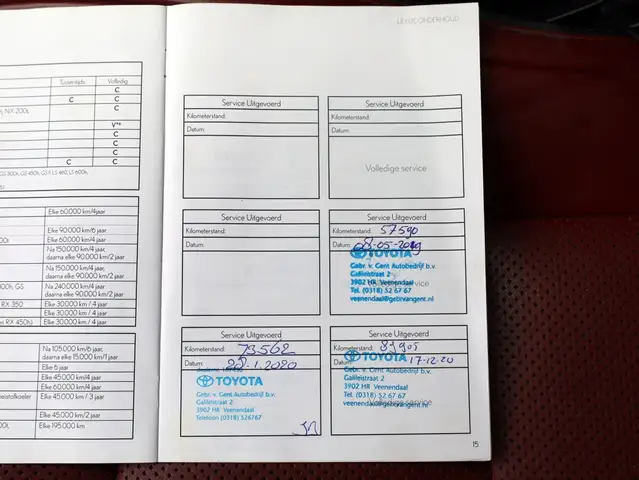 LEXUS ONDERHOUD
Tussentijds Volledig
C
C C
NX 200t, C
V*⁴
C
C
C
GS 300h, GS 450h, GS F, LS 460, LS 600h, C C
Elke 60.000 km/4jaar
Elke 90.000 km/6 jaar
Elke 60.000 km/4 jaar
Na 150.000 km/4 jaar,
daarna elke 90.000 km/2 jaar
Na 150.000 km/4 jaar,
daarna elke 90.000 km/2 jaar
GS Na 240.000 km/4 jaar
daarna elke 90.000 km/2 jaar
RX 350 Elke 30.000 km / 4 jaar
Elke 30.000 km / 4 jaar
RX 450h) Elke 30.000 km / 4 jaar
Na 105.000 km/6 jaar,
daarna elke 15.000 km/1 jaar
Elke 6 jaar
Elke 45.000 km/4 jaar
Elke 60.000 km/4 jaar
Elke 45.000 km / 3 jaar
Elke 45.000 km/2 jaar
Elke 195.000 km
Service Uitgevoerd
Kilometerstand:
Datum:
Service Uitgevoerd
Kilometerstand:
Datum:
Volledige service
Service Uitgevoerd
Kilometerstand:
Datum:
Service Uitgevoerd
Kilometerstand: 57590
Datum: 08-05-2019
TOYOTA
Gebr. v. Gent Autobedrijf b.v.
Galileistraat 2
3902 HR Veenendaal
Tel. (0318) 52 67 67
veenendaal@gebrvangent.nl
Service Uitgevoerd
Kilometerstand: 73562
Datum: 28-1-2020
TOYOTA
Gebr. v. Gent Autobedrijf b.v.
Galileistraat 2
3902 HR Veenendaal
Telefoon (0318) 526767
Service Uitgevoerd
Kilometerstand: 83905
Datum: 17-12-20
TOYOTA
Gebr. v. Gent Autobedrijf b.v.
Galileistraat 2
3902 HR Veenendaal
Tel. (0318) 52 67 67
veenendaal@gebrvangent.nl
Volledige service
15